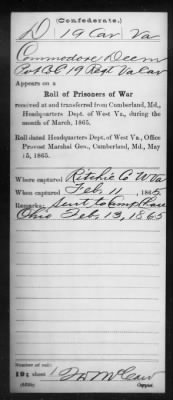 (Confederate.)
D 19 Cav Va
Commodore Deem
Pvt Co 19 Regt Va Cav
Appears on a
Roll of Prisoners of War
received at and transferred from Cumberland, Md.,
Headquarters Dept. of West Va., during the
month of March, 1865.
Roll dated Headquarters Dept. of West Va., Office
Provost Marshal Gen., Cumberland, Md., May
15, 1865.
Where captured Ritchie Co WVa
When captured Feb. 11, 1865
Remarks: Sent to Camp Chase
Ohio Feb. 13, 1865
Number of roll:
109 sheet 1
Copyist.